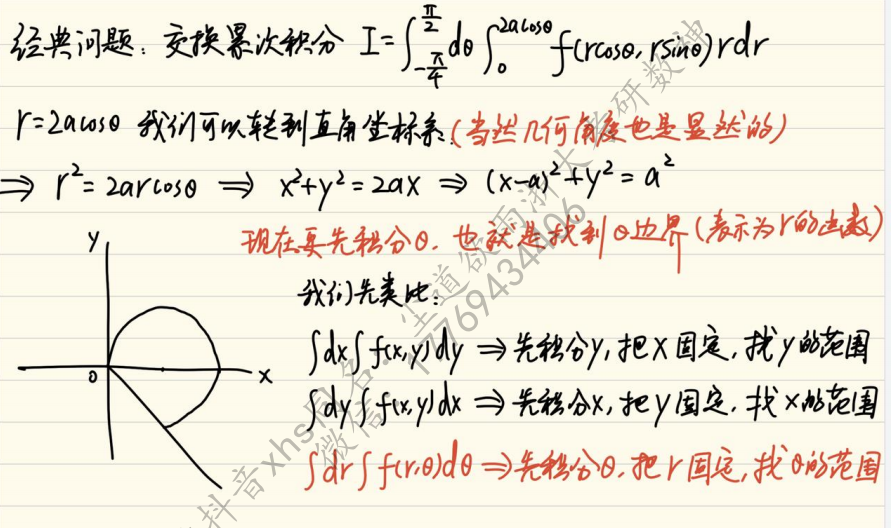 经典问题：交换累次积分 I=∫_{-π/4}^{π/2}dθ∫_0^{2acosθ}f(rcosθ,rsinθ)rdr
r=2acosθ 我们可以转到直角坐标系(当然几何角度也是显然的)
⇒ r²=2arcosθ ⇒ x²+y²=2ax ⇒ (x-a)²+y²=a²
现在要先积分θ，也就是找到θ边界(表示为r的函数)
我们先类比：
∫dx∫f(x,y)dy ⇒先积分y,把x固定,找y的范围
∫dy∫f(x,y)dx ⇒先积分x,把y固定,找x的范围
∫dr∫f(r,θ)dθ ⇒先积分θ,把r固定,找θ的范围
y
0
x